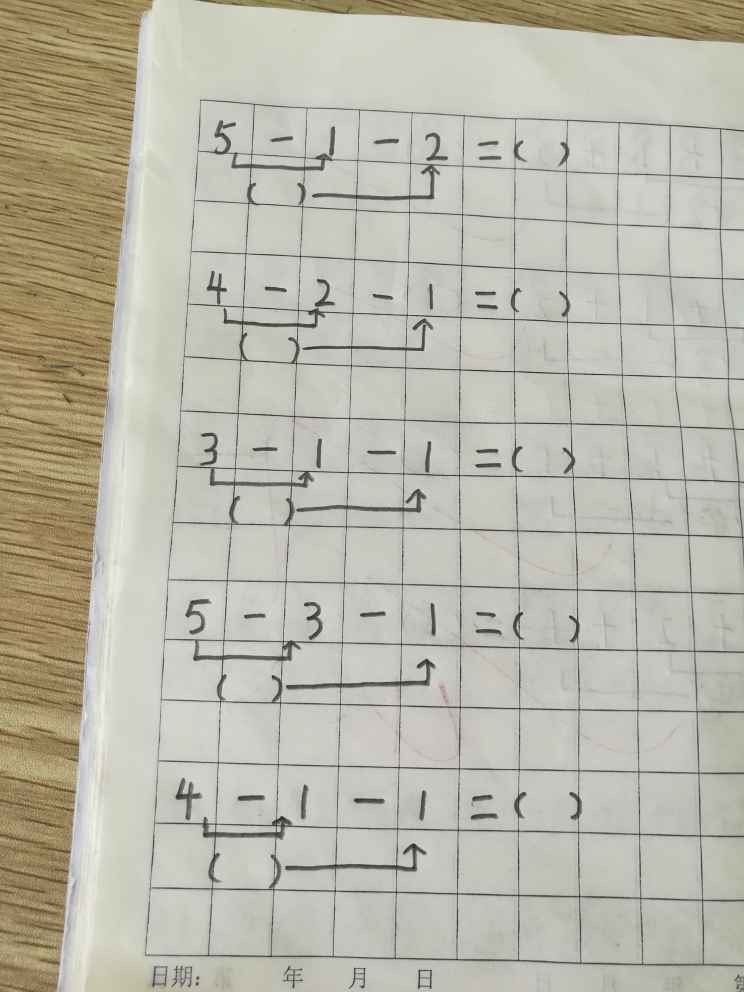 5 - 1 - 2 = ( )
( )
4 - 2 - 1 = ( )
( )
3 - 1 - 1 = ( )
( )
5 - 3 - 1 = ( )
( )
4 - 1 - 1 = ( )
( )
日期: 年 月 日